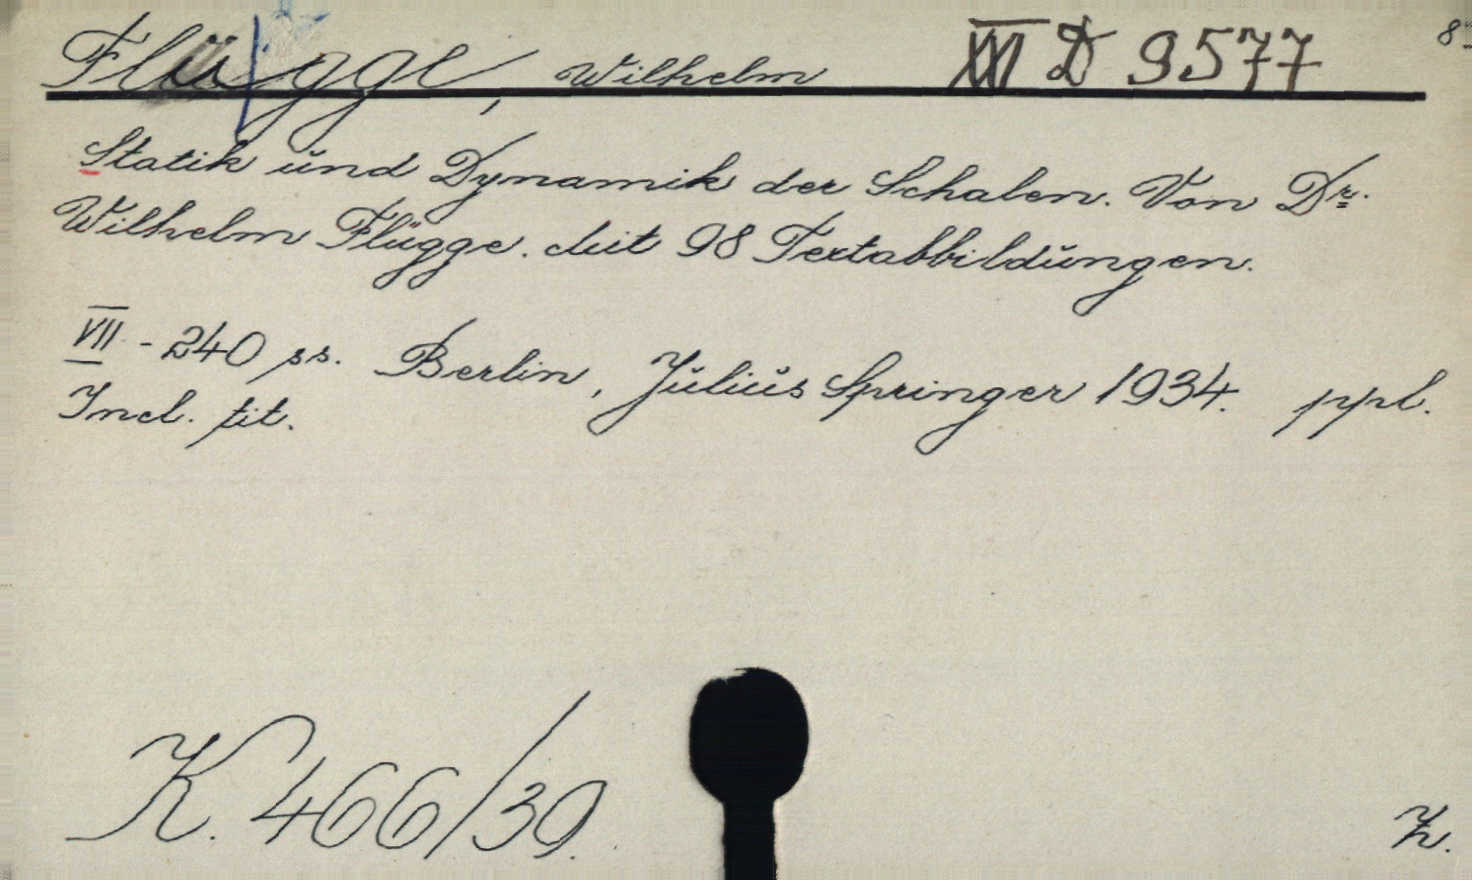 Flügge, Wilhelm XVI D 9577
Statik und Dynamik der Schalen. Von Dr.
Wilhelm Flügge. Mit 98 Textabbildungen.
VII - 240 ss. Berlin, Julius Springer 1934. ppl.
Incl. tit.
K. 466/39.